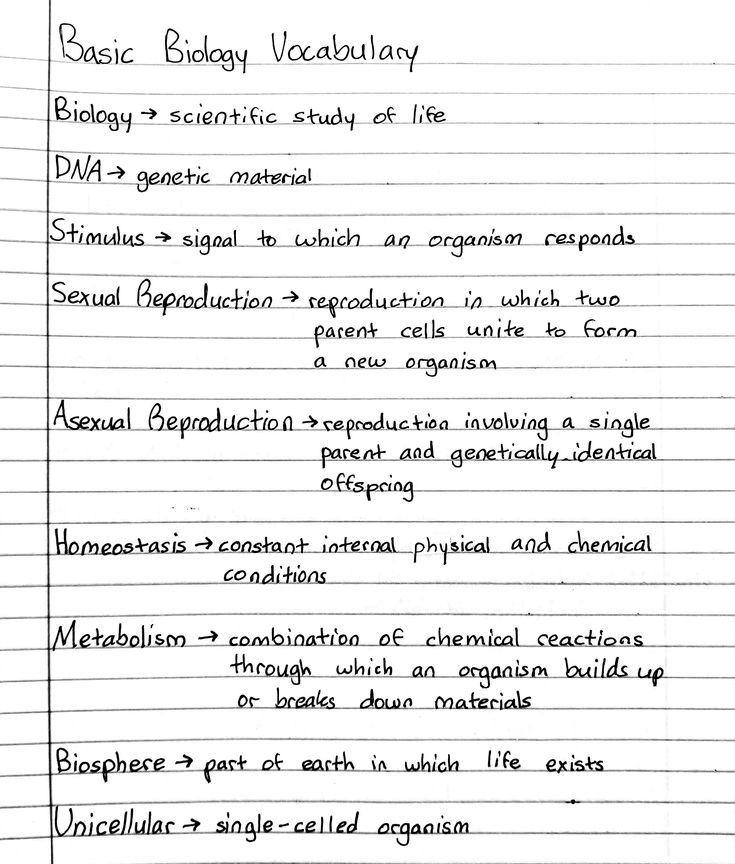 Basic Biology Vocabulary
Biology → scientific study of life
DNA → genetic material
Stimulus → signal to which an organism responds
Sexual Reproduction → reproduction in which two
parent cells unite to form
a new organism
Asexual Reproduction → reproduction involving a single
parent and genetically identical
offspring
Homeostasis → constant internal physical and chemical
conditions
Metabolism → combination of chemical reactions
through which an organism builds up
or breaks down materials
Biosphere → part of earth in which life exists
Unicellular → single-celled organism